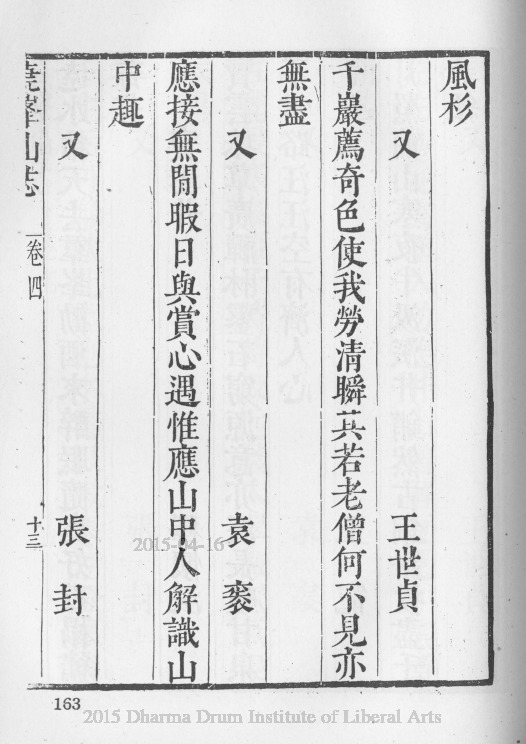 風杉
又 王世貞
千巖薦奇色使我勞清瞬其若老僧何不見亦
無盡
又 袁袠
應接無閒暇日與賞心遇惟應山中人解識山
中趣
又 張封
堯峯山志 卷四 十三
163
2015-04-16
2015 Dharma Drum Institute of Liberal Arts